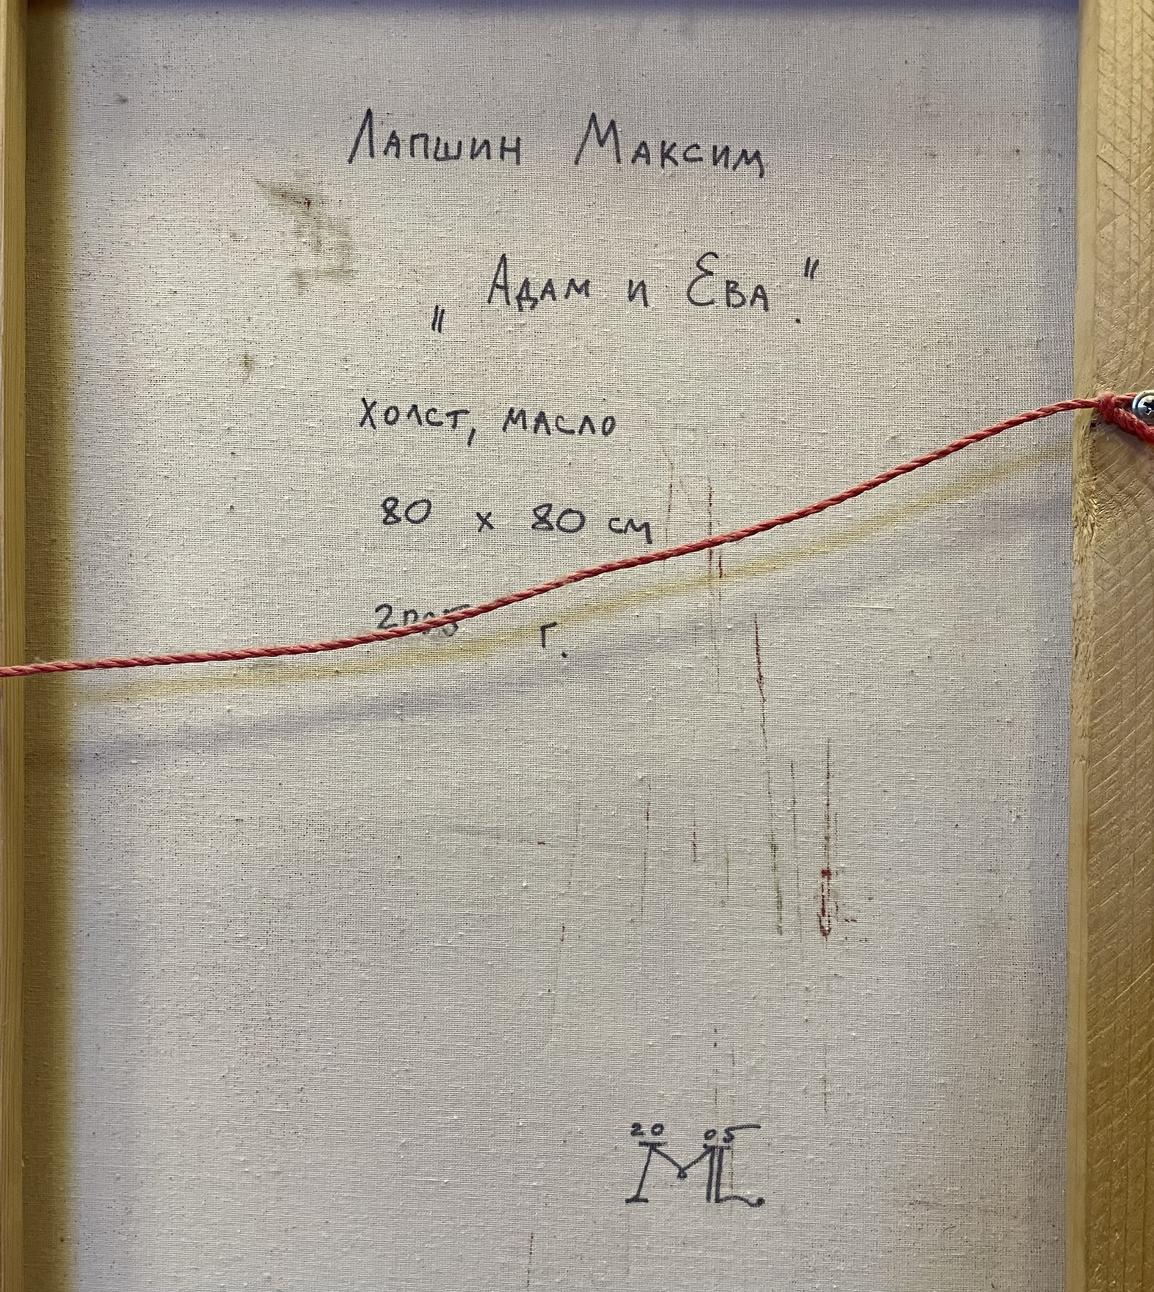 Лапшин Максим
„Адам и Ева."
холст, масло
80 х 80 см
2005 г.
20 05
ML